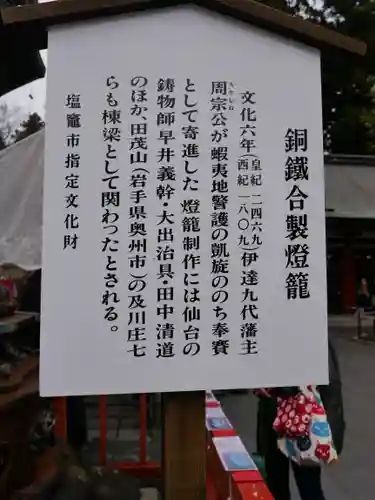 銅鐵合製燈籠
文化六年(皇紀二四六九)(西紀一八〇九)伊達九代藩主
周宗公が蝦夷地警護の凱旋ののち奉賽
ちかむね
として寄進した 燈籠制作には仙台の
鋳物師早井義幹・大出治具・田中清道
のほか、田茂山(岩手県奥州市)の及川庄七
らも棟梁として関わったとされる。
塩竈市指定文化財